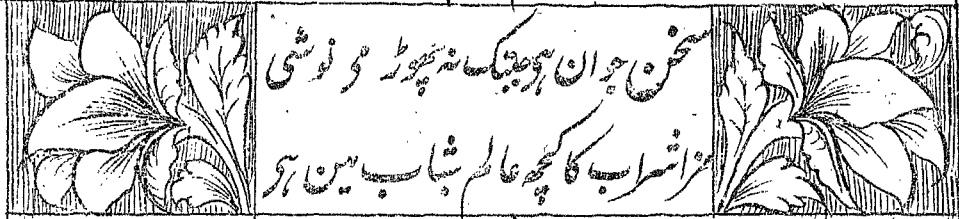 سخن جوان ہی جبتک نہ چھوڑ می نوشی
مزا شراب کا کچھ عالم شباب مین ہی